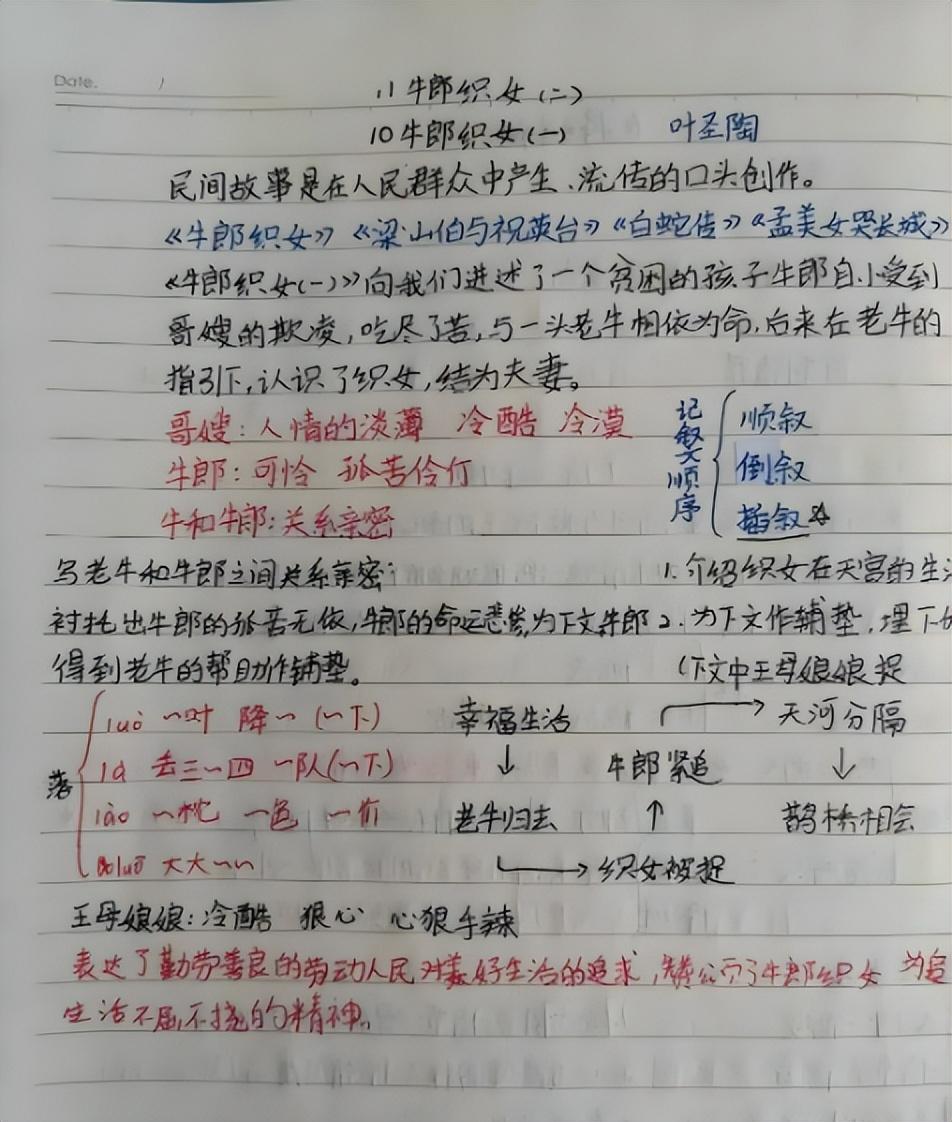 Date.
11 牛郎织女(二)
10 牛郎织女(一) 叶圣陶
民间故事是在人民群众中产生、流传的口头创作。
《牛郎织女》《梁山伯与祝英台》《白蛇传》《孟美女哭长城》
《牛郎织女(一)》向我们进述了一个贫困的孩子牛郎自小受到
哥嫂的欺凌,吃尽了苦,与一头老牛相依为命,后来在老牛的
指引下,认识了织女,结为夫妻。
哥嫂:人情的淡薄 冷酷 冷漠
牛郎:可怜 孤苦伶仃
牛和牛郎:关系亲密
记叙文顺序
顺叙
倒叙
插叙
写老牛和牛郎之间关系亲密:
衬托出牛郎的孤苦无依,牛郎的命运悲惨,为下文牛郎
得到老牛的帮助作铺垫。
1.介绍织女在天宫的生
2.为下文作铺垫,埋下
(下文中王母娘娘捉
落
luò ~叶 降~ (~下)
là 丢三~四 ~队(~下)
lào ~枕 ~色 ~价
luō 大大~~
幸福生活
↓
老牛归去
→ 织女被捉
↑
牛郎紧追
→ 天河分隔
↓
鹊桥相会
王母娘娘:冷酷 狠心 心狠手辣
表达了勤劳善良的劳动人民对美好生活的追求,牛郎织女 为
生活不屈不挠的精神。